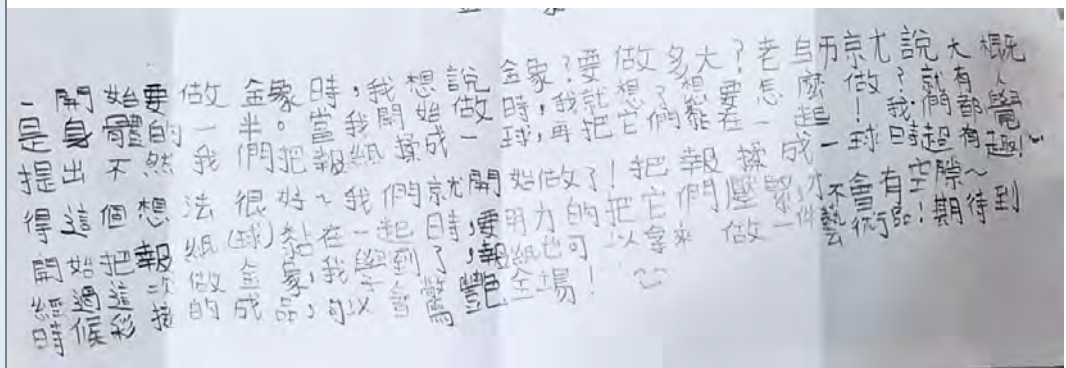 一開始要做金象時，我想說金象？要做多大？老師就說大概
是身體的一半。當我開始做時，我就想了想要怎麼做？就有人
提出不然我們把報紙揉成一球，再把它們黏在一起！我們都覺
得這個想法很好~我們就開始做了！把報揉成一球時超有趣！
開始把報紙(球)黏在一起時，要用力的把它們壓緊才不會有空隙~
經過這次做金象，我學到了，報紙也可以拿來做一件藝術品！期待到
時候彩接的成品，可以會驚艷全場！